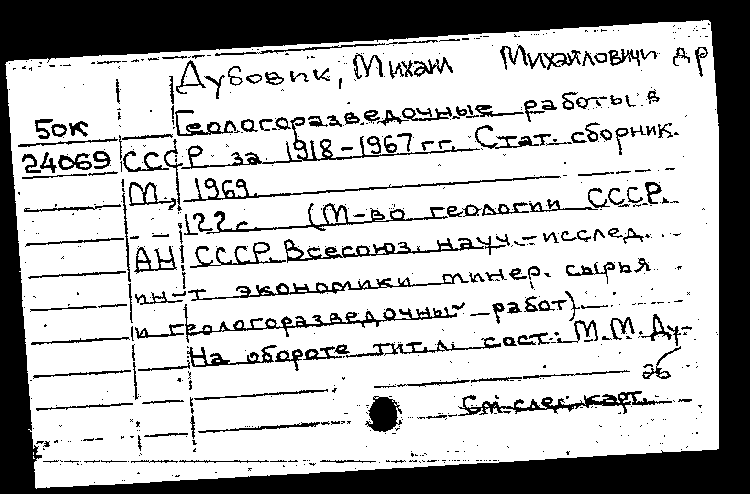 Дубовик, Михаил Михайлович и др
Геологоразведочные работы в
50к
24069 СССР за 1918-1967 гг. Стат. сборник.
М., 1969.
122 с. (М-во геологии СССР.
АН СССР. Всесоюз. науч.-исслед.
ин-т экономики минер. сырья
и геологоразведочных работ).
На обороте тит. л. сост.: М.М. Ду-
См след. карт.